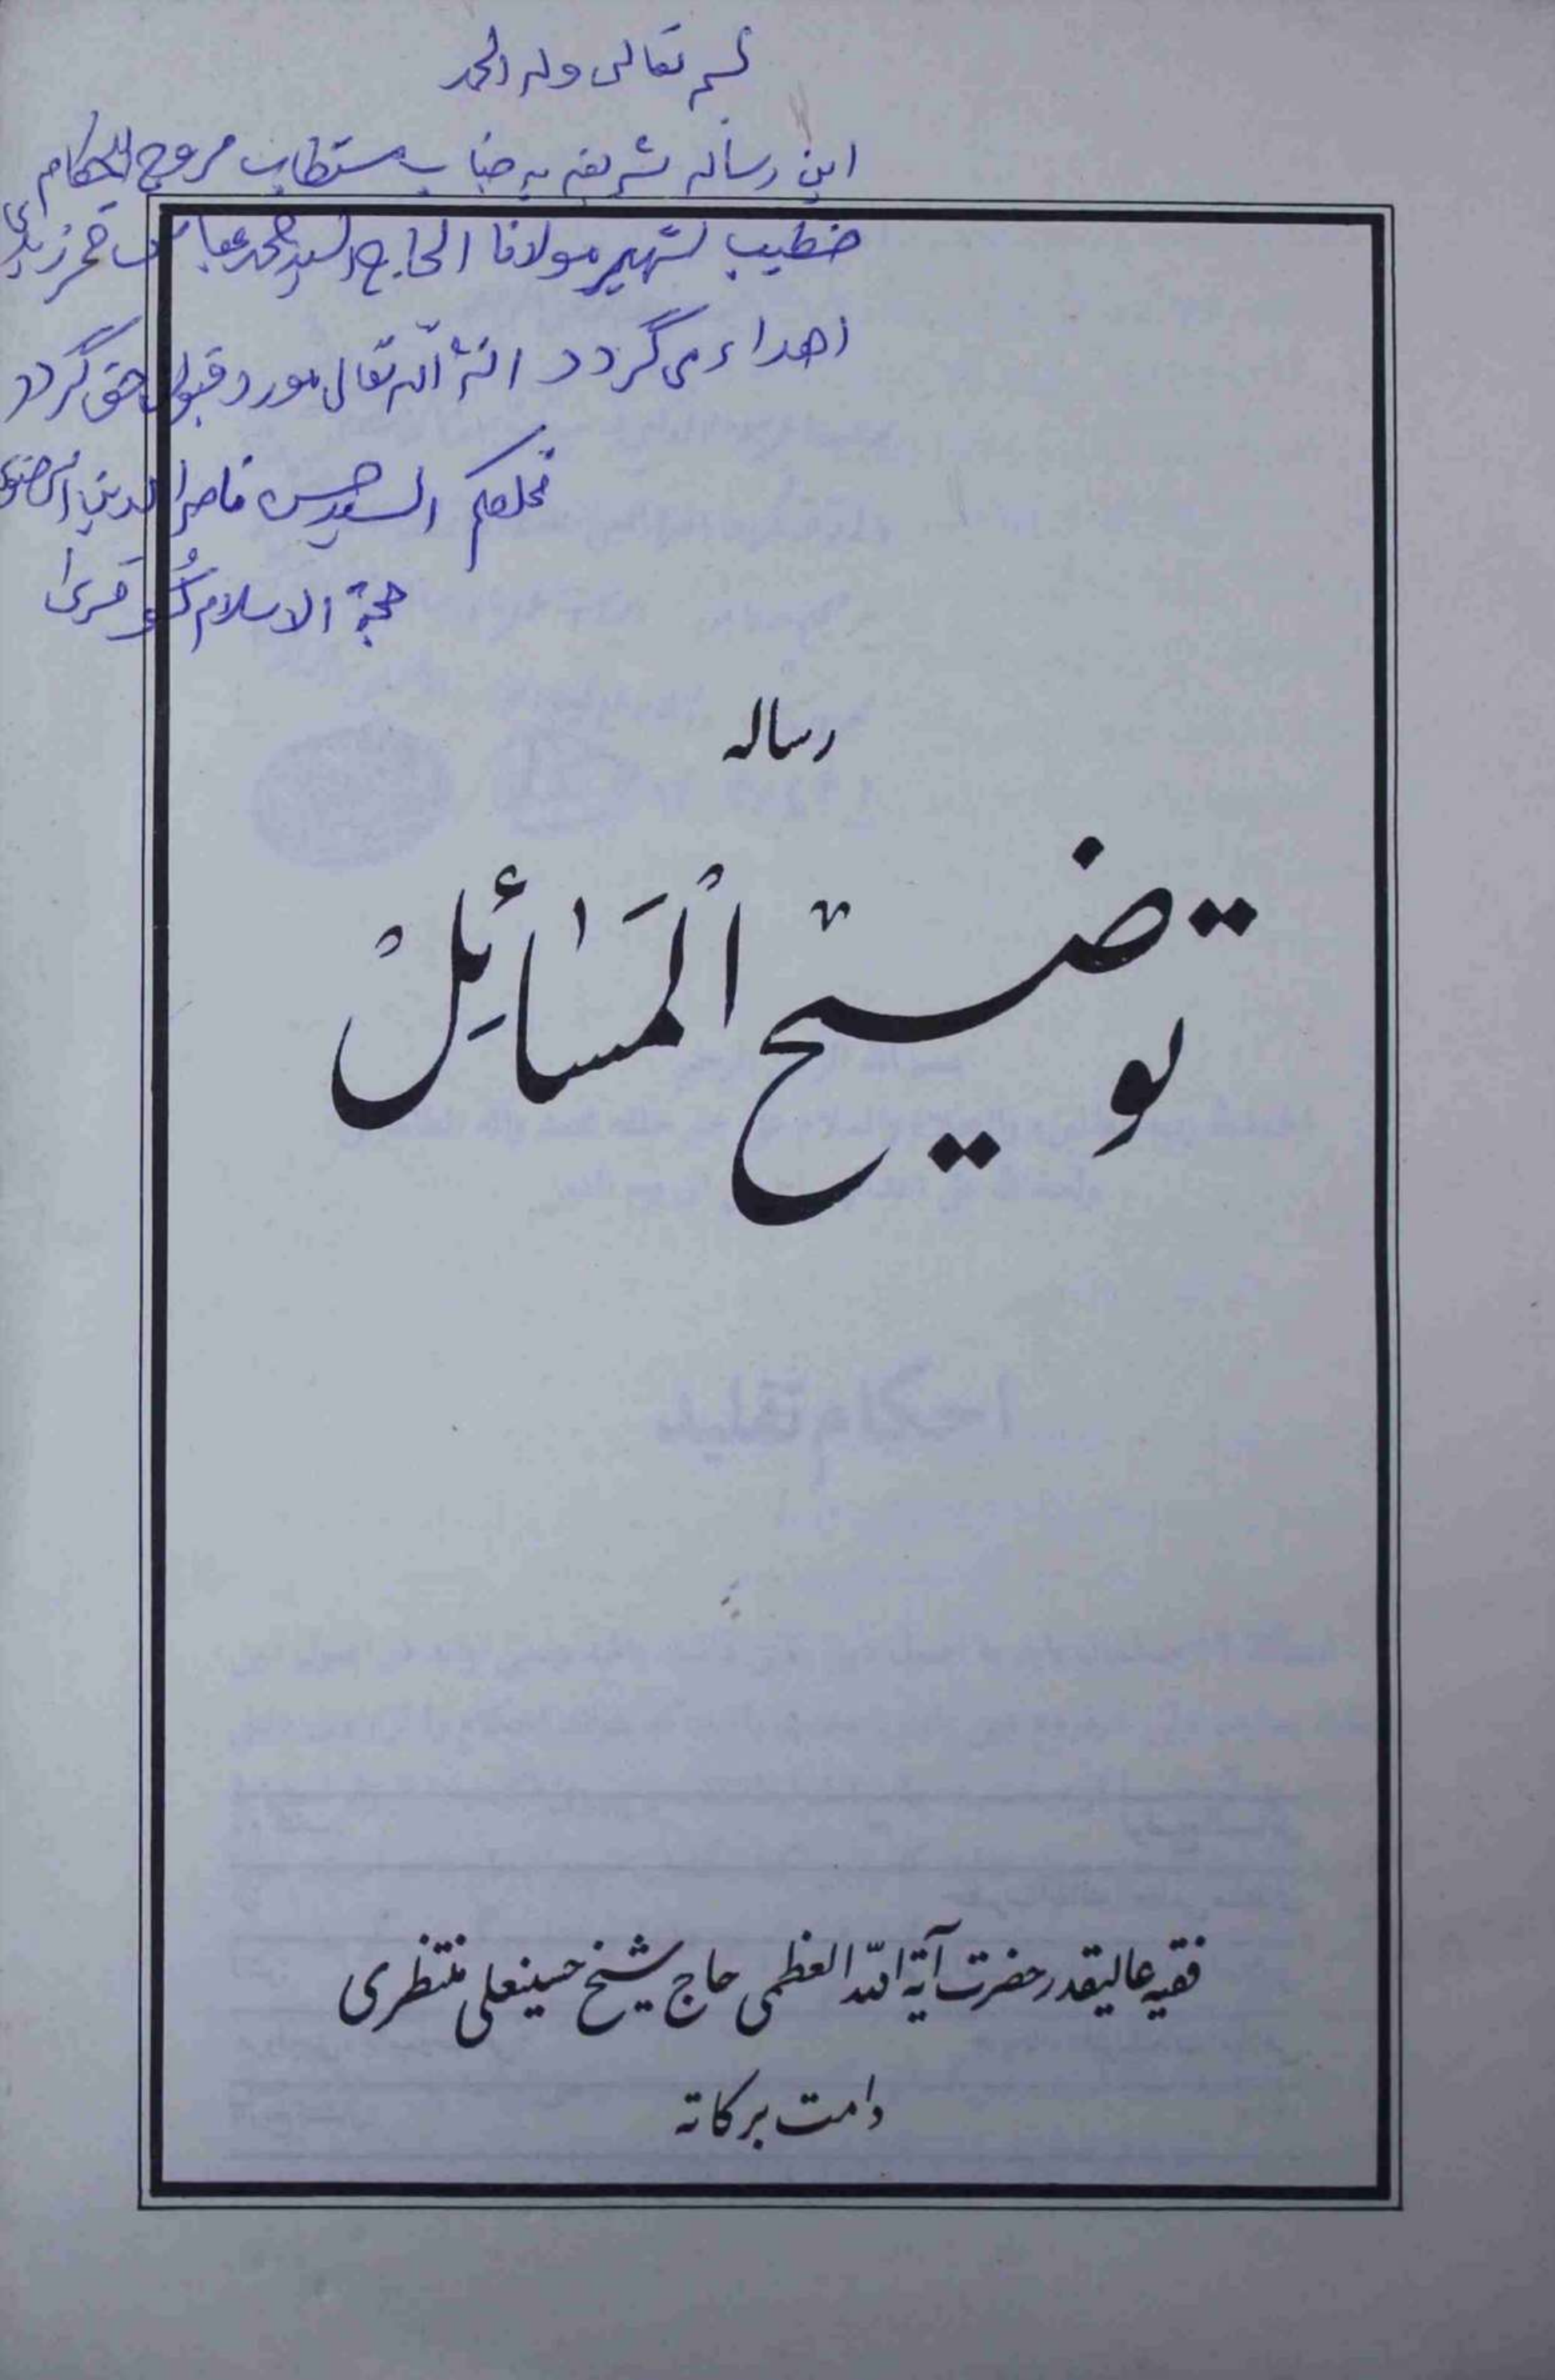 بسم تعالی وله الحمد
این رساله شریفه به جناب مستطاب مروج الاحکام
خطیب شهیر مولانا الحاج السید محمد عباس قمر زیدی
اهداء می گردد انشأ الله تعالی مورد قبول حق گردد
مخلصکم السید حسن ناصر الدین الرضوی
حجة الاسلام
رساله
توضیح اَلْمَسٰائِلْ
فقیه عالیقدر حضرت آیة الله العظمی حاج شیخ حسینعلی منتظری
دامت برکاته